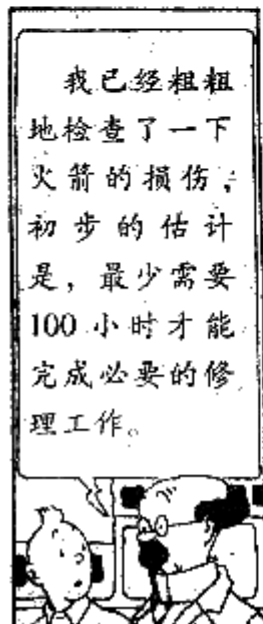 我已经粗粗
地检查了一下
火箭的损伤，
初步的估计
是，最少需要
100小时才能
完成必要的修
理工作。